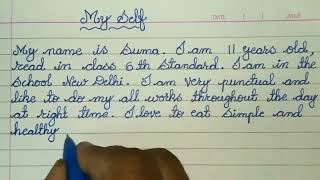 My Self
My name is Suma. I am 11 years old,
read in class 6th Standard. I am in the
School New Delhi. I am very punctual and
like to do my all works throughout the day
at right time. I love to eat simple and
healthy